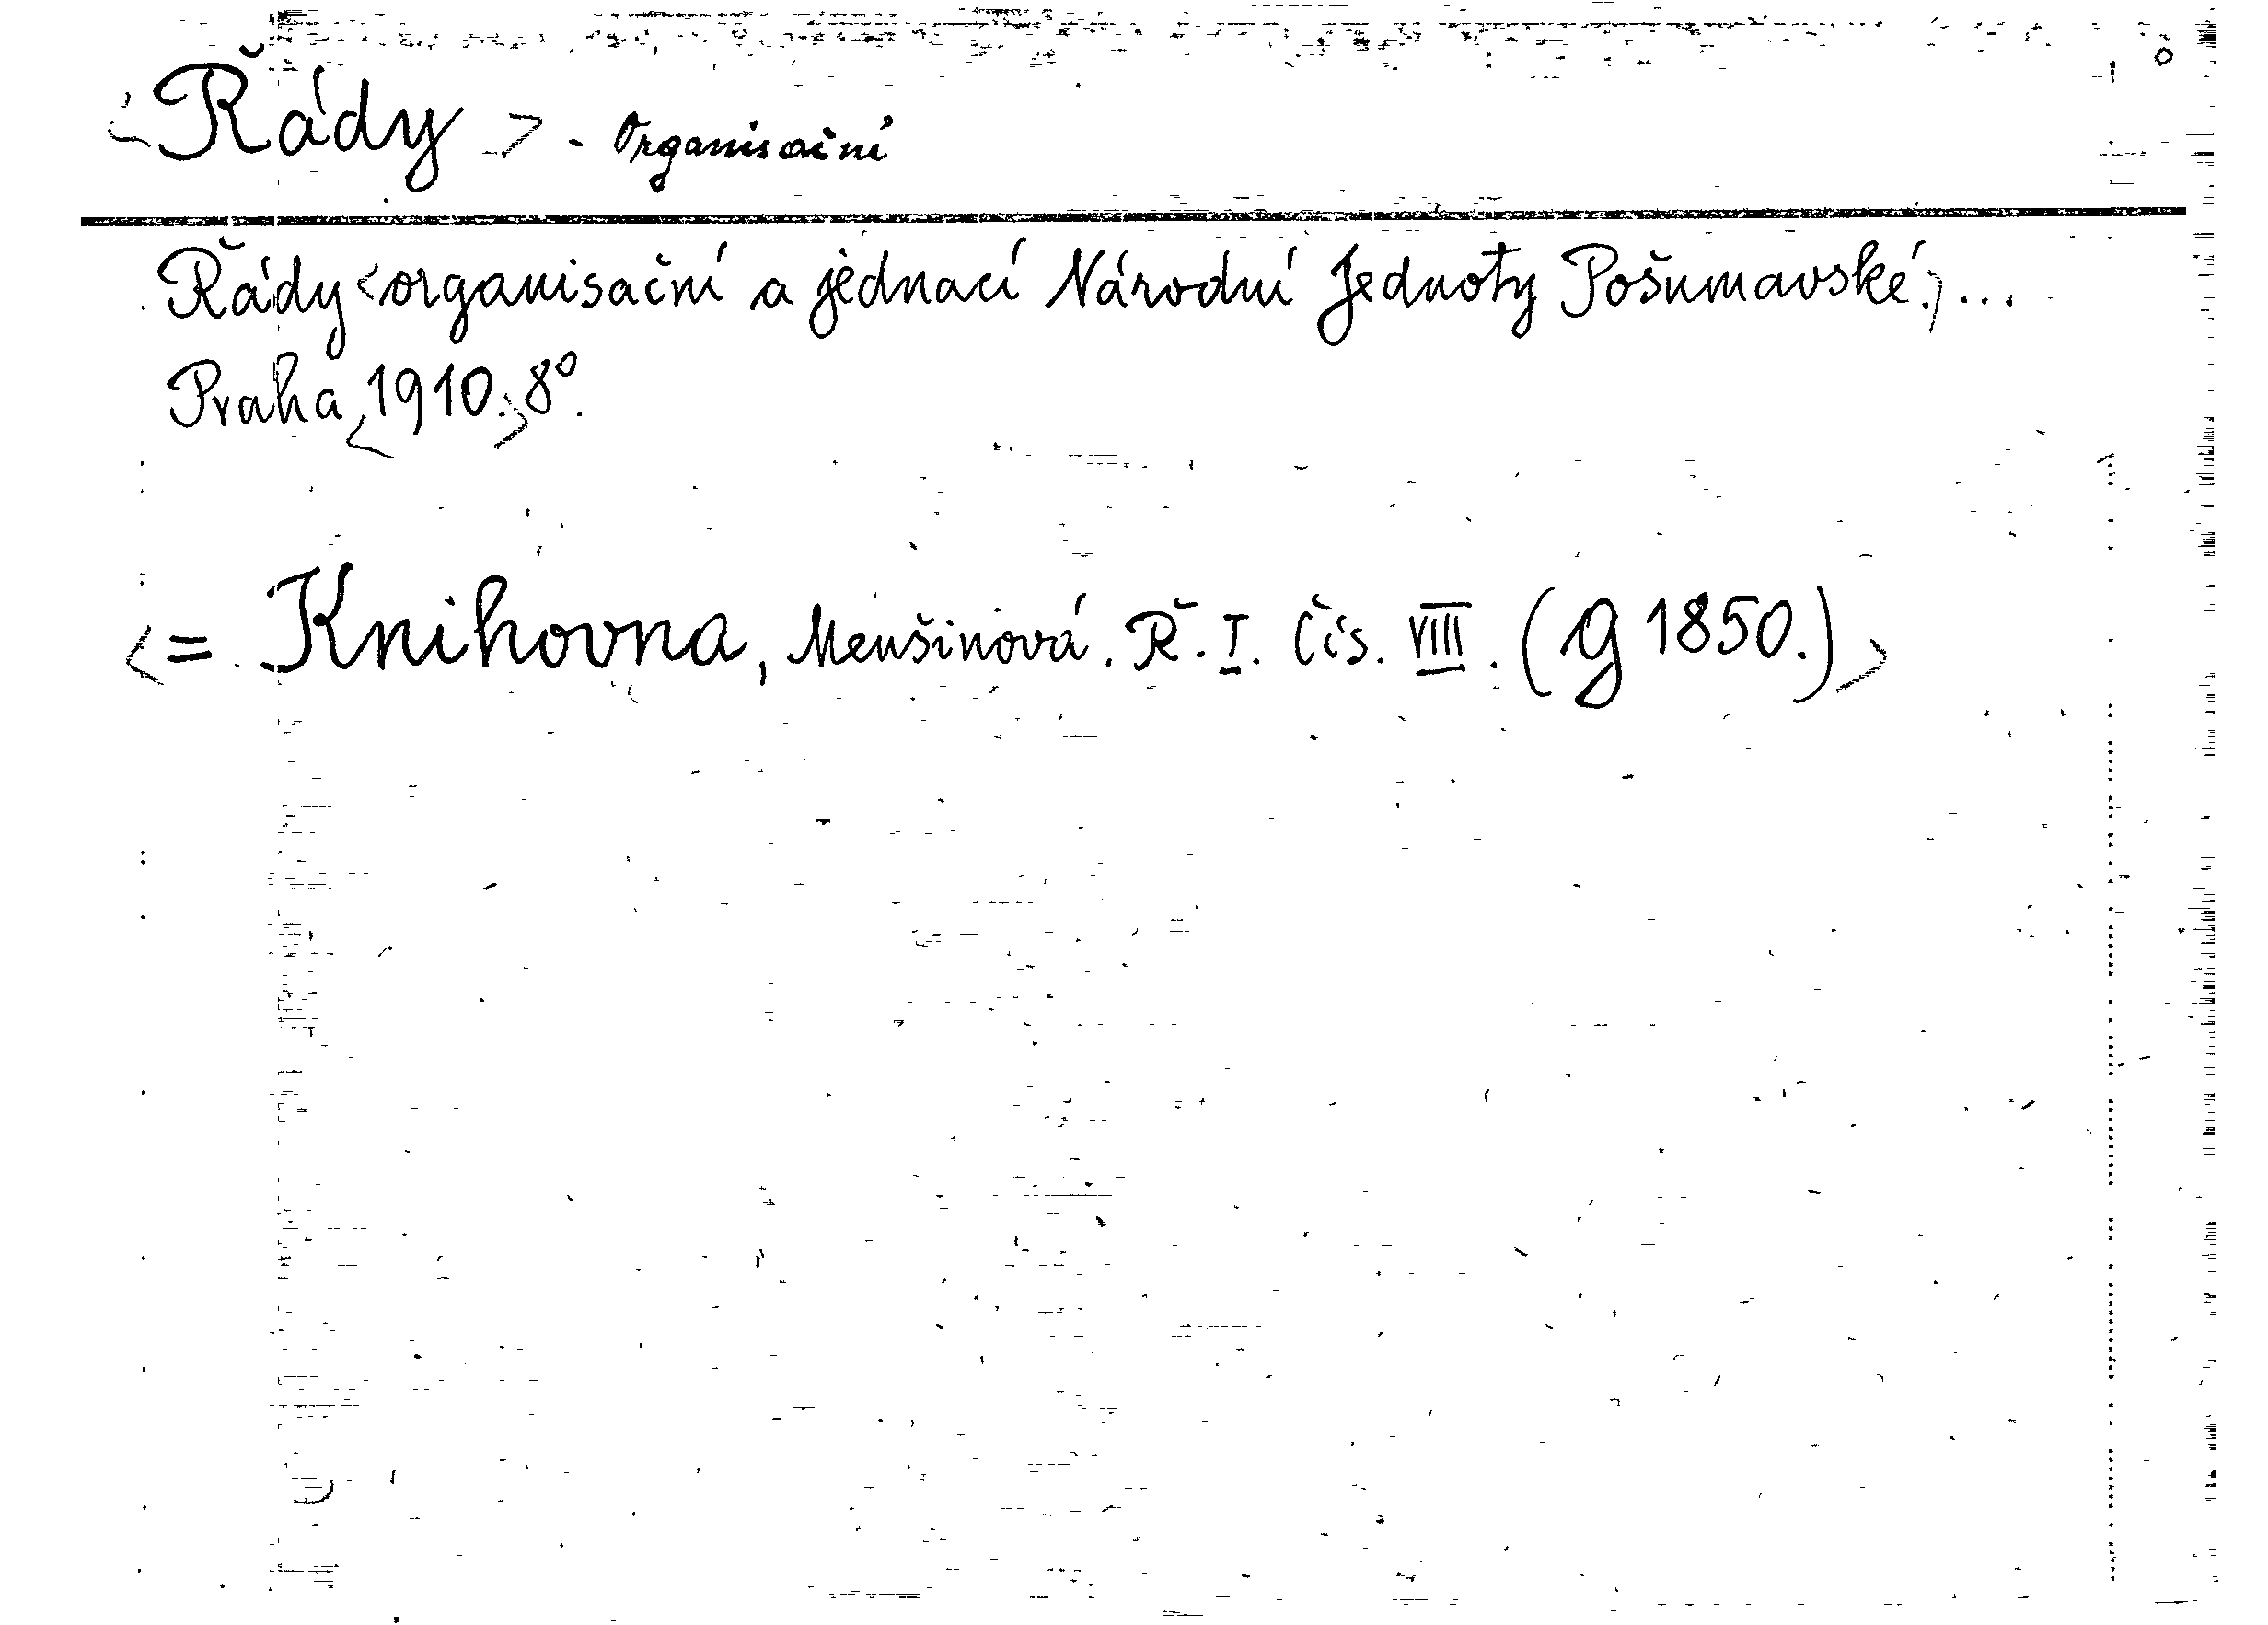 <Řády> - Organisační
Řády <organisační a jednací Národní Jednoty Pošumavské.> ...
Praha, <1910.> 8º.
<= Knihovna, Menšinová. Ř. I. Čís. VIII. (g 1850.)>